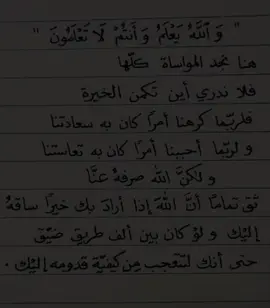 " وَ ٱللَّهُ يَعْلَمُ وَ أَنتُمْ لَا تَعْلَمُونَ "
هنا نجد المواساة كلّها
فلا ندري أين تكمن الخيرة
فلربّما كرهنا أمرًا كان به سعادتنا
و لربّما أحببنا أمرًا كان به تعاستنا
و لكنَّ الله صرفهُ عنَّا
ثق تمامًا أنَّ اللّٰهَ إذا أرادَ بك خيرًا ساقهُ
إليْك و لوْ كان بين ألف طريقٍ ضيّق
حتى أنك لتتعجب مِن كيفيّة قدومه إليْك .